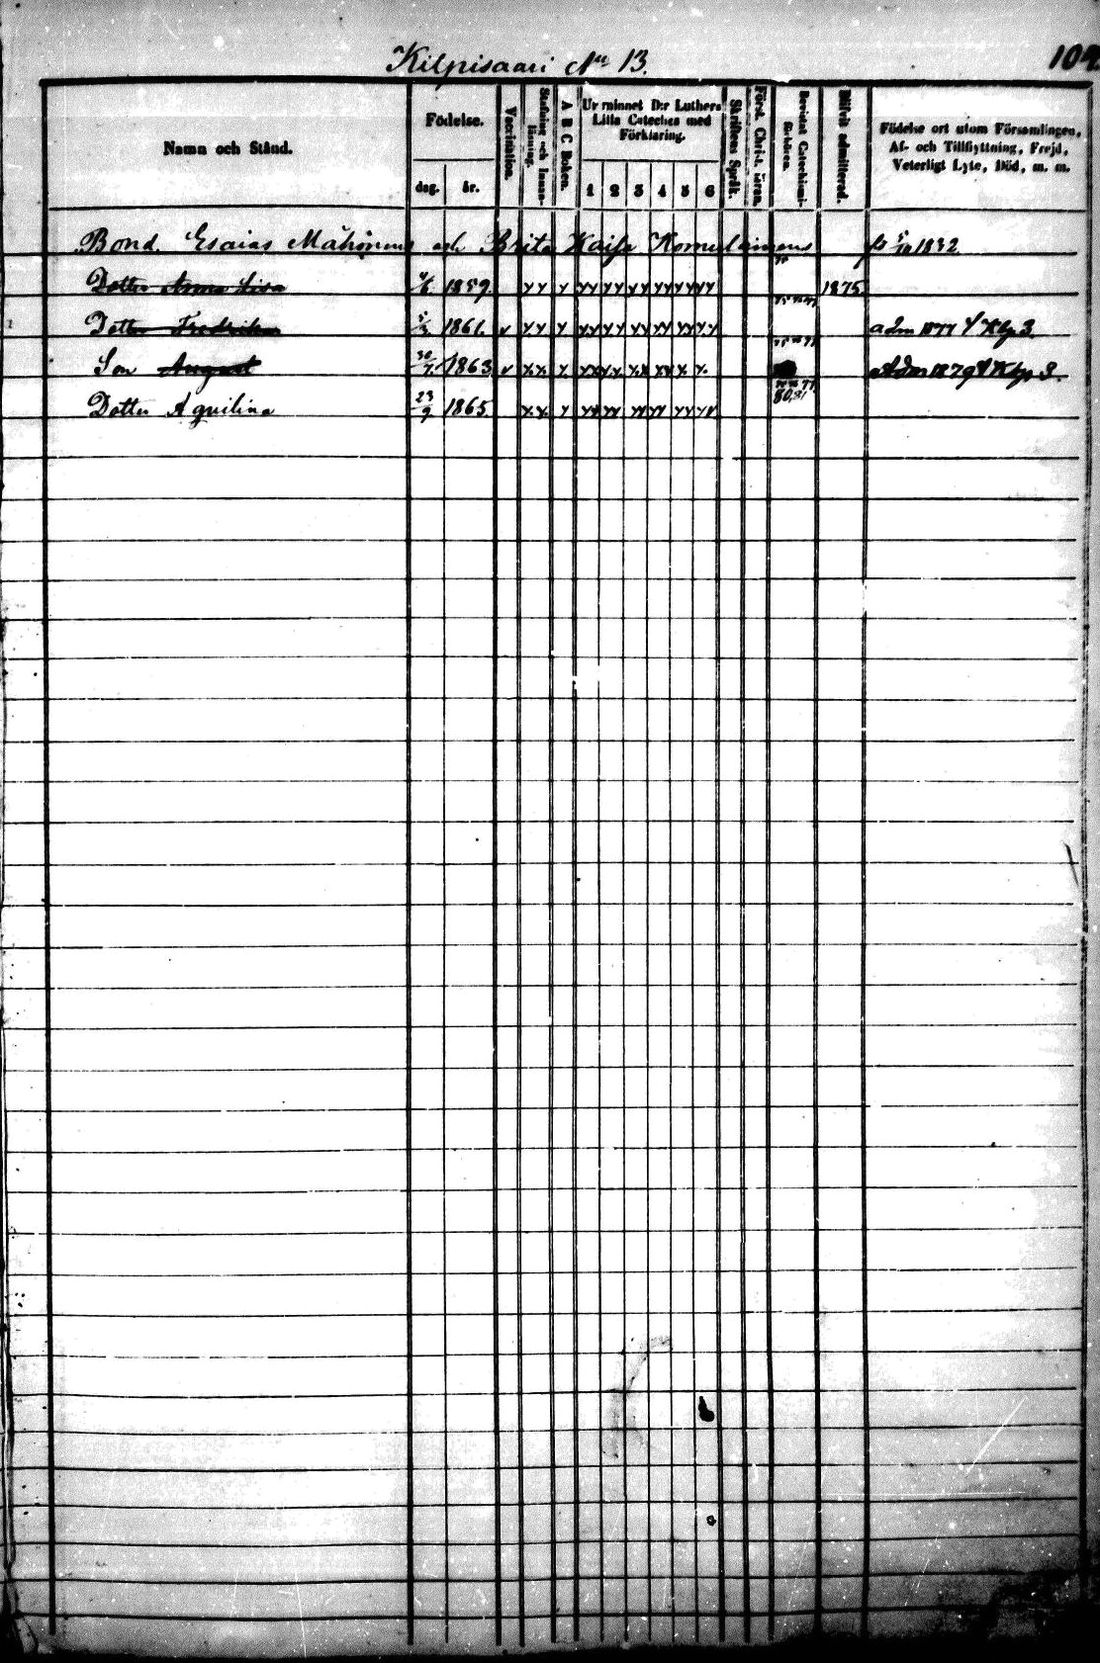 Kilpisaari No 13.
104
Namn och Stånd.
Födelse.
dag.
år.
Vaccination.
Stafning och Innan-
läsning.
A B C Boken.
Ur minnet D:r Luthers
Lilla Cateches med
Förklaring.
1 2 3 4 5 6
Skriftens Språk.
Först. Christ. läran.
Bevistat Catechismi-
förhören.
Blifvit admitterad.
Födelse ort utom Församlingen,
Af- och Tillflyttning, Frejd,
Veterligt Lyte, Död, m. m.
Bond. Esaias Mähönens och Brita Kaisa Komulainens 1832
Dotter Anna Lisa 4/6 1859. 1875
Dotter Fredrika 1861. adm 1877
Son August 30/7 1863 Adm 1879
Dotter Aquilina 23/9 1865